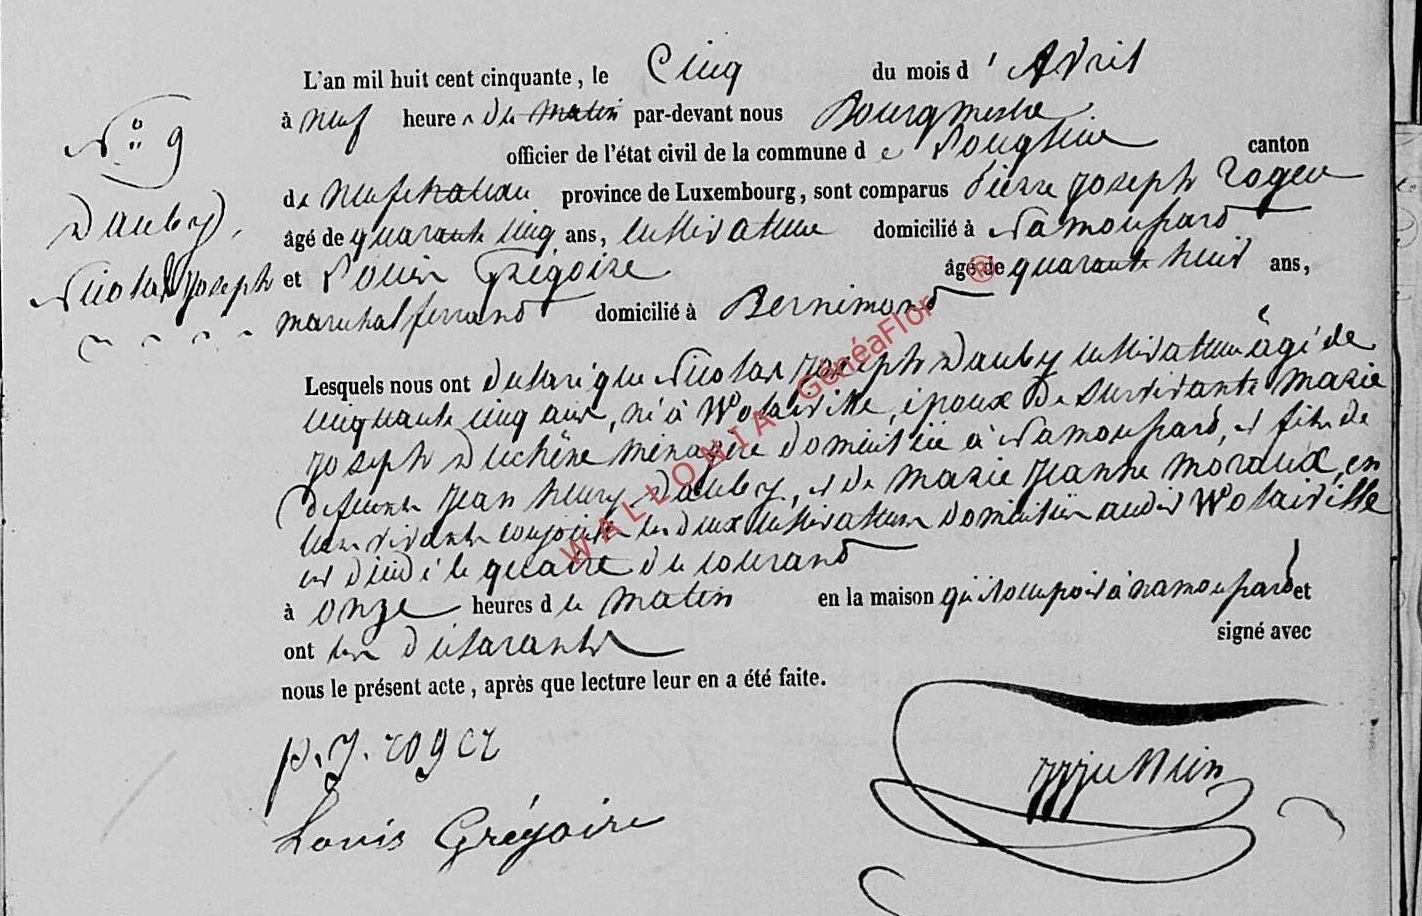 L'an mil huit cent cinquante, le Cinq du mois d'Avril
à neuf heures du matin par-devant nous Bourgmestre
officier de l'état civil de la commune de Longlier canton
N° 9
de Neufchateau province de Luxembourg, sont comparus Pierre Joseph Roger
Dauby,
âgé de quarante cinq ans, cultivateur domicilié à Namoussard
Nicolas Joseph
et Louis Grégoire âgé de quarante huit ans,
marechal ferrand domicilié à Bernimond
Lesquels nous ont déclaré que Nicolas Joseph Dauby cultivateur âgé de
cinquante cinq ans, né à Wolaiville, époux de survivante Marie
Joseph Duchêne ménagère domiciliée à Namoussard, et fils de
défunts Jean henry Dauby, et de Marie Jeanne Moraux, en
leur vivants conjoints les deux cultivateurs domiciliés audit Wolaiville
est décédé le quatre du courand
à onze heures du matin en la maison qu'il occupoit à namoussard et
ont les déclarants signé avec
nous le présent acte, après que lecture leur en a été faite.
p. J. roger
Louis Grégoire
WALLONIA GénéaFlor ®